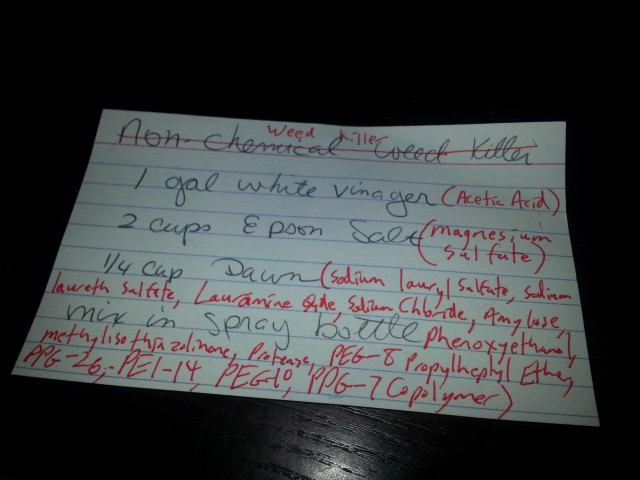 Weed Killer
Non-Chemical Weed Killer
1 gal white vinager (Acetic Acid)
2 cups Epson Salt (Magnesium Sulfate)
1/4 cup Dawn (Sodium lauryl Sulfate, Sodium
laureth Sulfate, Lauramine Oxide, Sodium Chloride, Amylase,
mix in spray bottle Phenoxyethanol,
methylisothiazolinone, Protease, PEG-8 Propylheptyl Ether,
PPG-26, PEI-14, PEG-10, PPG-7 Copolymer)